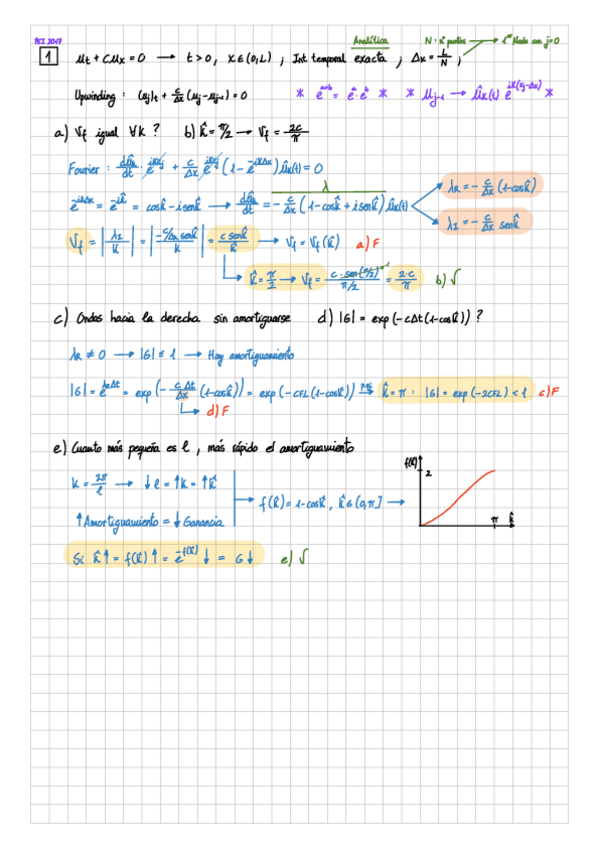 PEI 2017
Analítica N = nº puntos → 1er Nodo con j=0
1 μt + Cμx = 0 → t > 0, x ∈ (0,L) ; Int temporal exacta ; Δx = L/N ;
Upwinding : (μj)t + c/Δx (μj - μj-1) = 0 * e^(a+b) = e^a · e^b * * μj-1 → μ̂k(t) e^(ik(xj-Δx)) *
a) Vf igual ∀k ? b) k̂ = π/2 → Vf = 2c/π
Fourier : dμ̂k/dt · e^(ikxj) + c/Δx e^(ikxj) (1 - e^(-ikΔx)) μ̂k(t) = 0
e^(-ikΔx) = e^(-ik̂) = cosk̂ - i senk̂ → dμ̂k/dt = - c/Δx (1 - cosk̂ + i senk̂) μ̂k(t)
λ
λR = - c/Δx (1-cosk̂)
λI = - c/Δx senk̂
Vf = |λI/k| = |-c/Δx senk̂ / k| = c senk̂ / k̂ → Vf = Vf(k̂) a) F
k̂ = π/2 → Vf = c · sen(π/2) / π/2 = 2·c/π b) √
c) Ondas hacia la derecha sin amortiguarse d) |G| = exp(-cΔt(1-cosk̂)) ?
λR ≠ 0 → |G| ≤ 1 → Hay amortiguamiento
|G| = e^(λRΔt) = exp(- cΔt/Δx (1-cosk̂)) = exp(-CFL(1-cosk̂)) → k̂ = π , |G| = exp(-2CFL) < 1 c) F
d) F
e) Cuanto más pequeña es l , más rápido el amortiguamiento
k = 2π/l → ↓l = ↑k = ↑k̂
↑Amortiguamiento = ↓Ganancia
f(k̂) = 1-cosk̂ , k̂ ∈ (0,π] →
f(k̂)
2
π k̂
Si k̂↑ = f(k̂)↑ = e^(-f(k̂))↓ = G↓ e) √